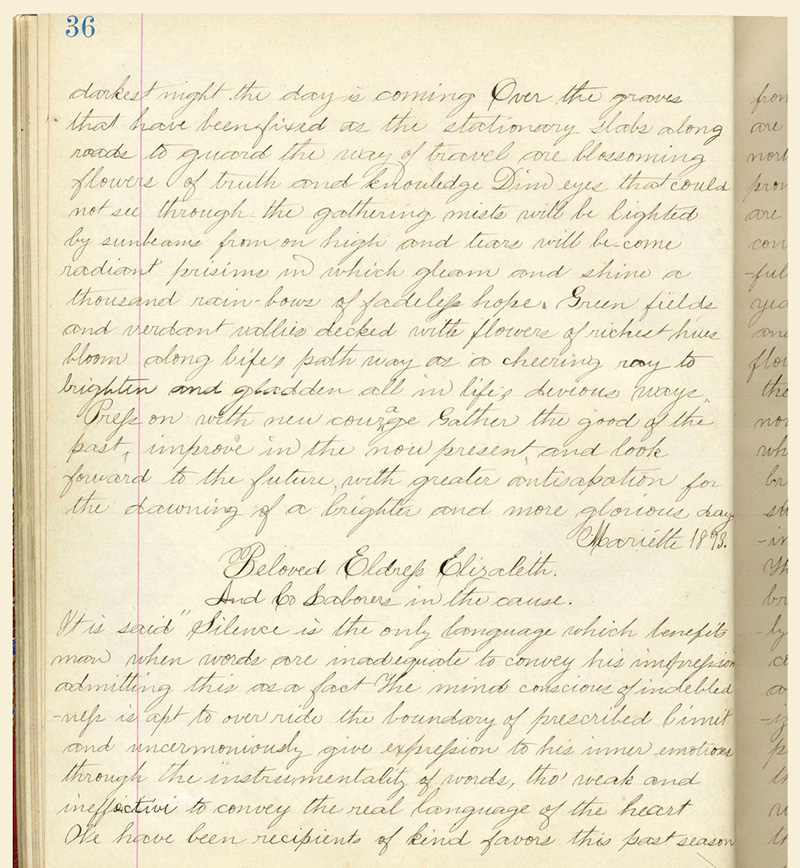 36
darkest night the day is coming Over the graves
that have been fixed as the stationary slabs along
roads to guard the way of travel are blossoming
flowers of truth and knowledge Dim eyes that could
not see through the gathering mists will be lighted
by sunbeams from on high and tears will be come
radiant prisims in which gleam and shine a
thousand rain-bows of fadeless hope. Green fields
and verdant vallies decked with flowers of richest hues
bloom along life's path way as a cheering ray to
brighten and gladden all in life's devious ways.
Press on with new courage Gather the good of the
past, improve in the now present, and look
forward to the future, with greater antisapation for
the dawning of a brighter and more glorious day
Mariette 1893.
Beloved Eldress Elizabeth.
And Co Laborers in the cause.
It is said "Silence is the only language which benefits
man when words are inadequate to convey his impression"
admitting this as a fact The mind conscious of indebted
-ness is apt to over ride the boundary of prescribed limit
and uncermoniously give expression to his inner emotions
through the instrumentality of words, tho' weak and
ineffective to convey the real language of the heart
We have been recipients of kind favors this past season